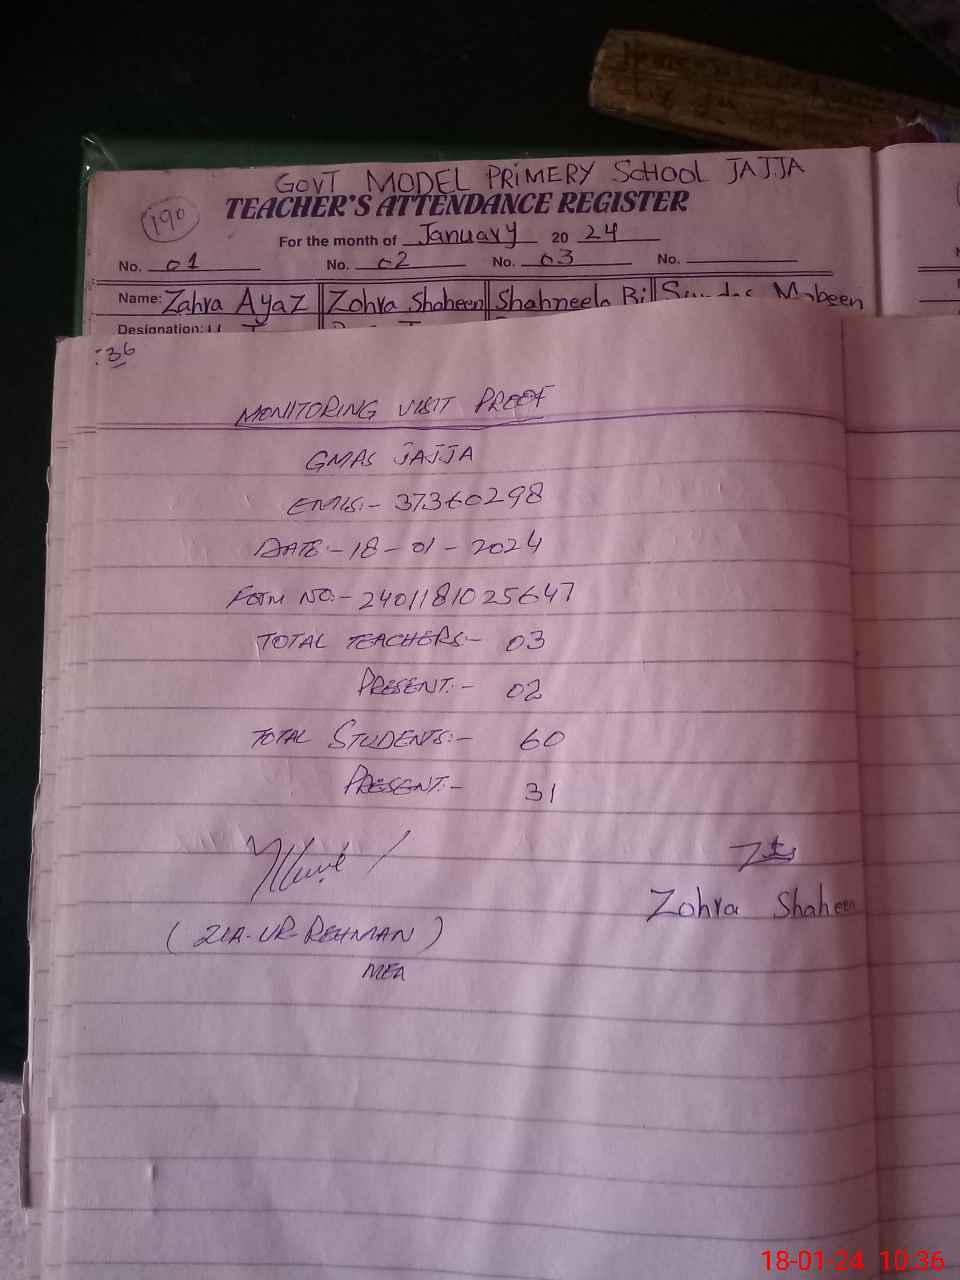 GOVT MODEL PRIMERY SCHOOL JAJJA
190
TEACHER'S ATTENDANCE REGISTER
For the month of January 20 24
No. 01 No. 02 No. 03 No.
Name: Zahra Ayaz Zohra Shaheen Shahneela Bi Sundas Mobeen
Designation:
:36
MONITORING VISIT PROOF
GMPS JAJJA
EMIS:- 37360298
DATE:- 18-01-2024
FORM NO:- 2401181025647
TOTAL TEACHERS:- 03
PRESENT:- 02
TOTAL STUDENTS:- 60
PRESENT:- 31
Zohra Shaheen
(ZIA-UR-REHMAN)
MEA
18-01-24 10:36